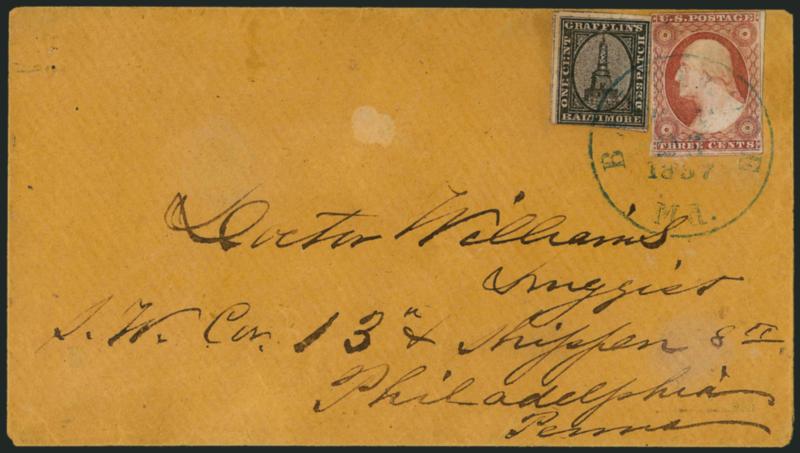 GRAFFLIN'S
ONE CENT
DESPATCH
BALTIMORE
U.S. POSTAGE
THREE CENTS
1857
Md.
Doctor Williams
Druggist
S. W. Cor. 13th & Shippen St.
Philadelphia
Penna